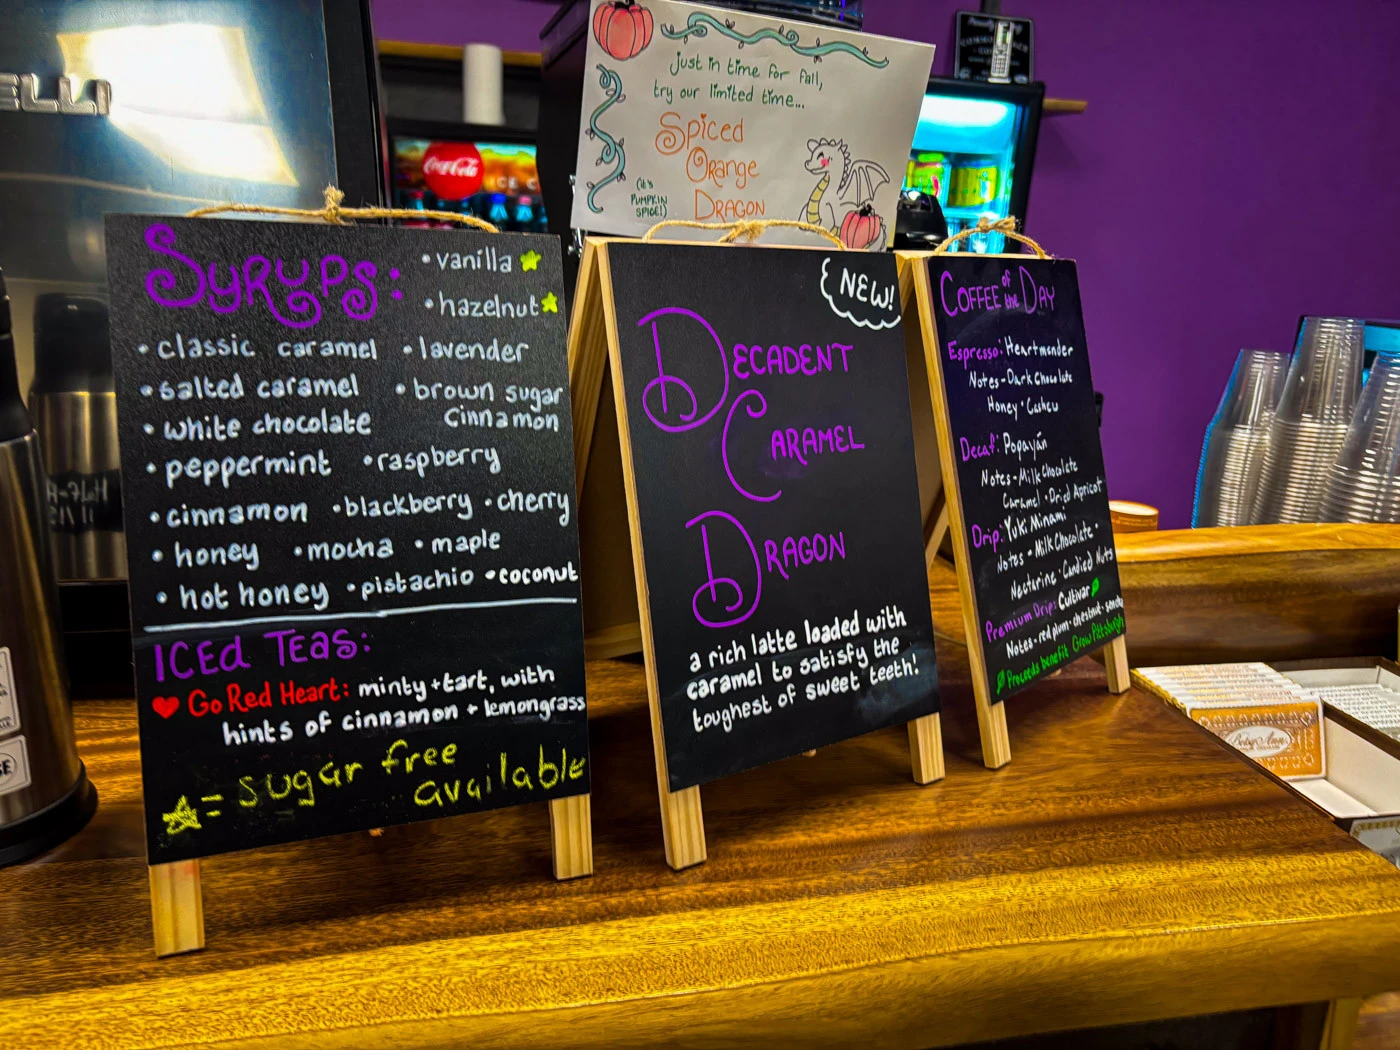 just in time for fall,
try our limited time...
Spiced
Orange
Dragon
(it's
pumpkin
spice!)
Coca-Cola
ICE C
ELLI
Syrups:
• vanilla
• hazelnut
• classic caramel
• lavender
• salted caramel
• brown sugar
cinnamon
• white chocolate
• peppermint • raspberry
• cinnamon • blackberry • cherry
• honey • mocha • maple
• hot honey • pistachio • coconut
ICEd TEAS:
Go Red Heart: minty + tart, with
hints of cinnamon + lemongrass
= sugar free
available
NEW!
DECADENT
CARAMEL
DRAGON
a rich latte loaded with
caramel to satisfy the
toughest of sweet teeth!
COFFEE of the DAY
Espresso: Heartmender
Notes - Dark Chocolate
Honey • Cashew
Decaf: Popayán
Notes - Milk Chocolate
Caramel • Dried Apricot
Drip: Yuki Minami
Notes - Milk Chocolate •
Nectarine • Candied Nuts
Premium Drip: Cultivar
Notes - red plum • chestnut •
Proceeds benefit Grow Pittsburgh
Betsy Ann